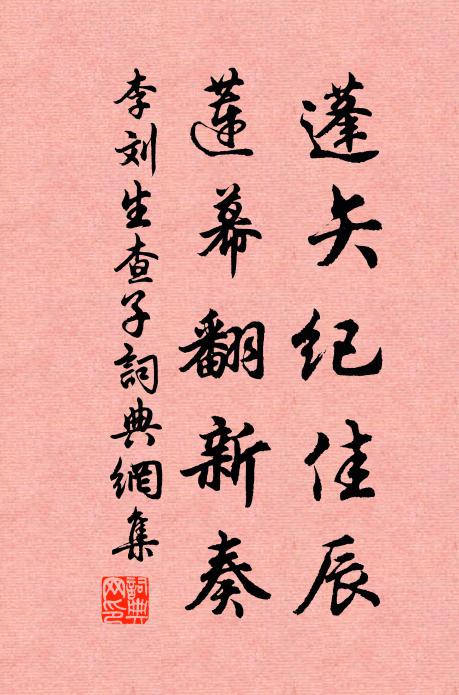 蓬矢纪佳辰
莲幕翻新奏
李刘生查子詞典網集
詞典
网印